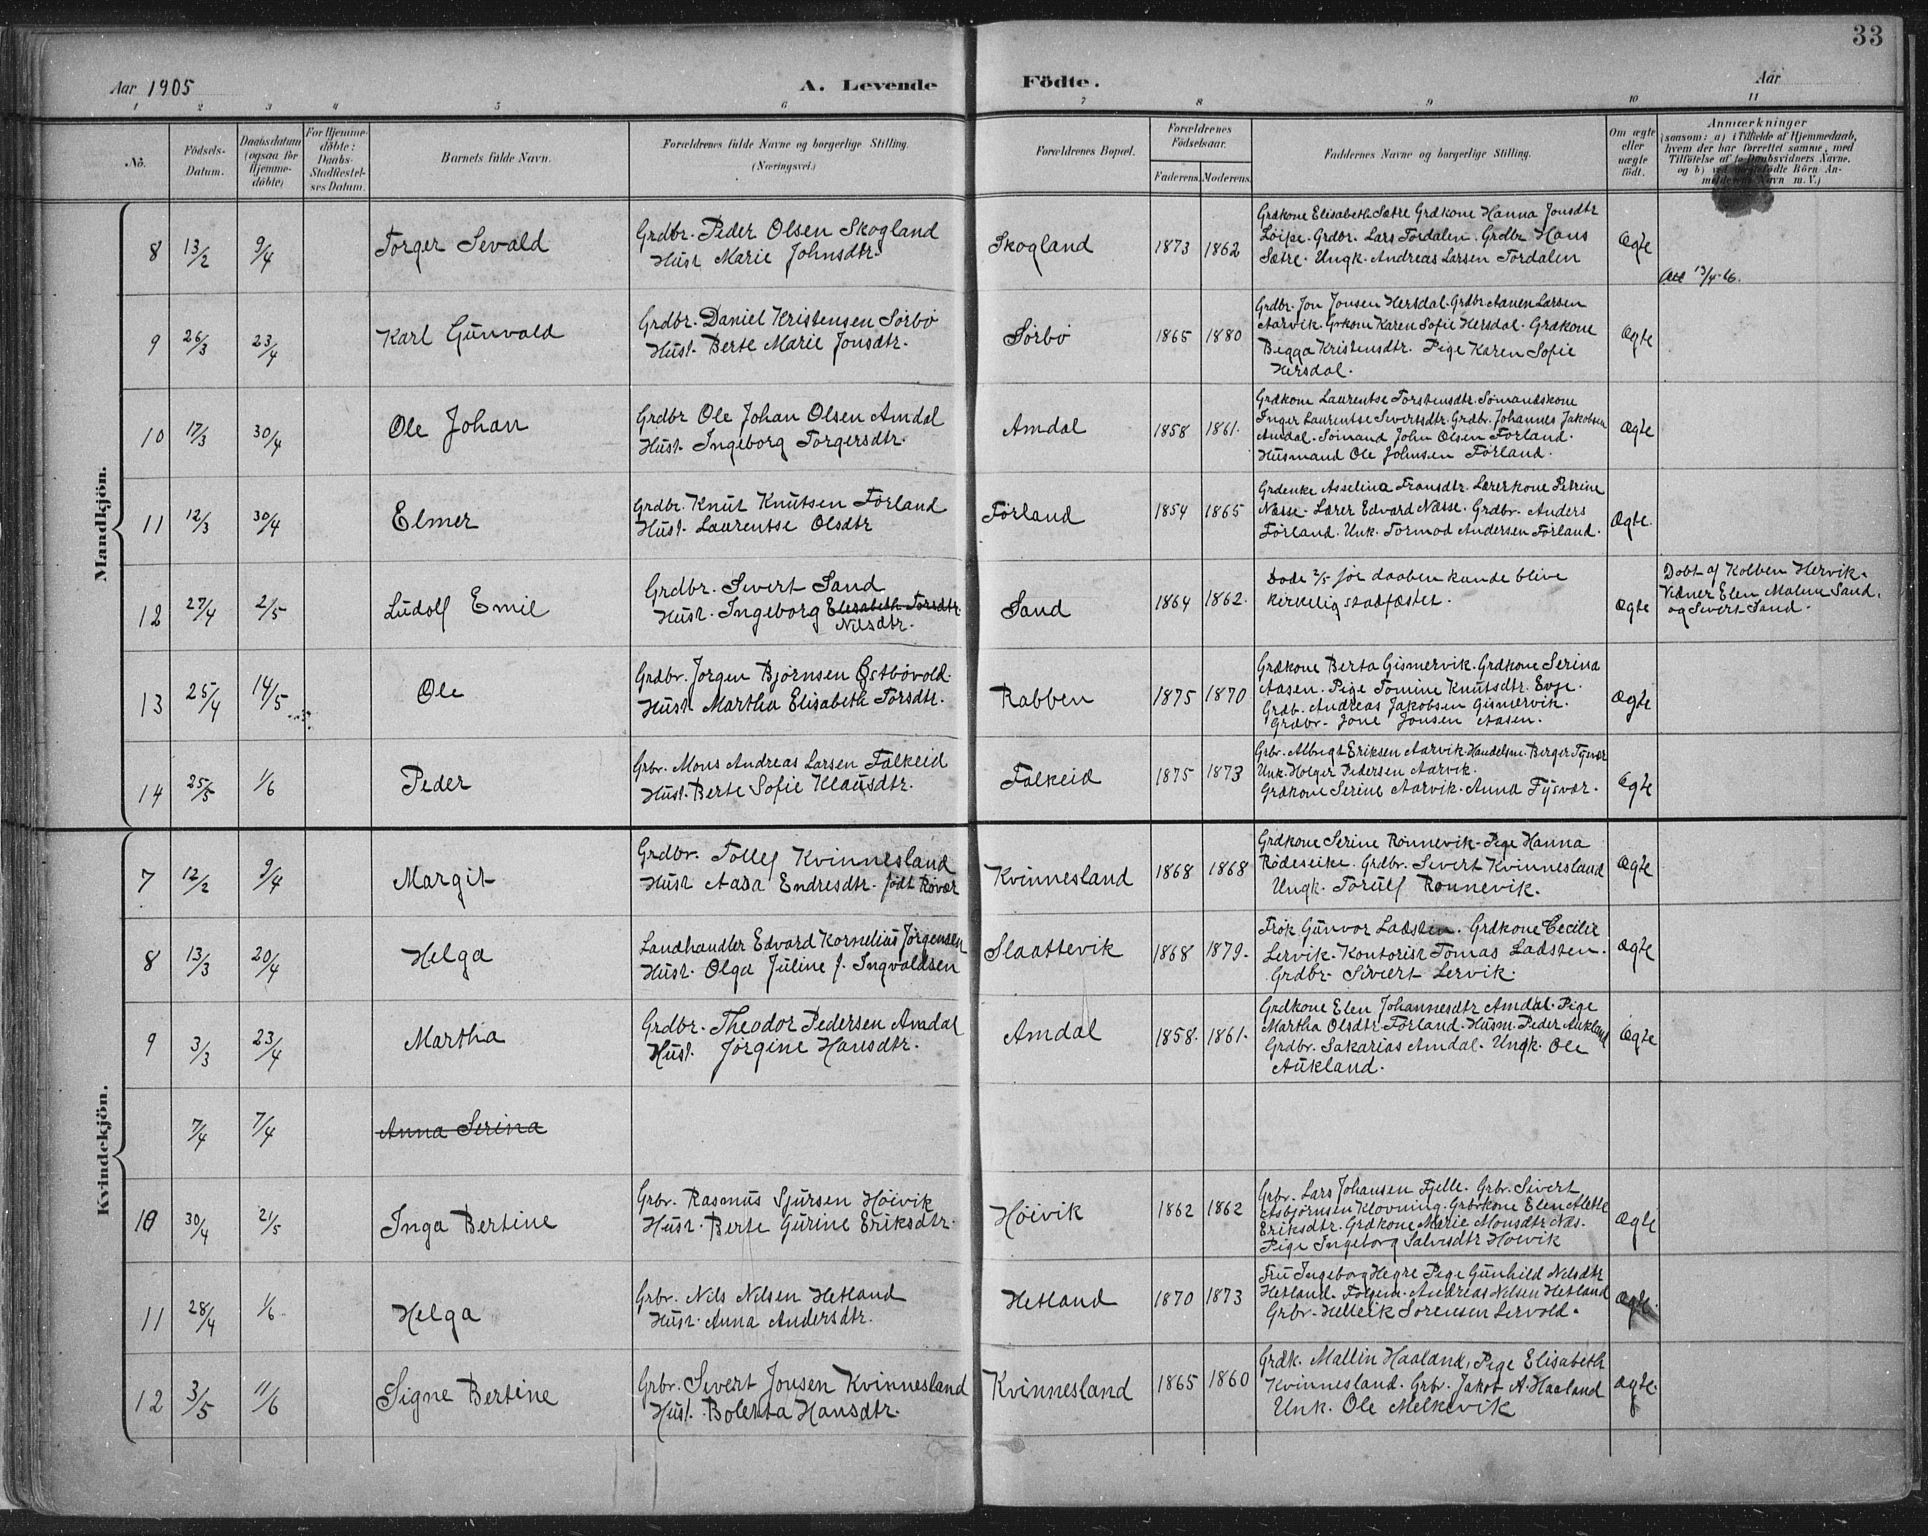 33
Aar 1905
A. Levende Födte.
Aar
1 2 3 4 5 6 7 8 9 10 11
No.
Födsels-Datum.
Daabsdatum (ogsaa for Hjemmedöbte)
For Hjemmedöbte: Daabs-Stadfæstelses Datum.
Barnets fulde Navn.
Forældrenes fulde Navne og borgerlige Stilling.
(Næringsvei.)
Forældrenes Bopæl.
Forældrenes Födselsaar.
Faderens. Moderens.
Faddernes Navne og borgerlige Stilling.
Om ægte eller uægte födt.
Anmærkninger
(saasom: a) i Tilfælde af Hjemmedaab,
hvem der har forrettet samme, med
Tilföielse af to Daabsvidners Navne.
og b) ved uægtefödte Börn An-
melderens Navn m. V.)
Mandkjön.
8 13/2 9/4 Torger Sevald
Grdbr. Peder Olsen Skogland
Hust Marie Johnsdtr.
Skogland 1873 1862
Grdkone Elisabeth Sætre Grdkone Hanna Jonsdtr
Löipe. Grdbr. Lars Tordalen. Grdbr Hans
Sætre. Ungk. Andreas Larsen Tordalen
Ægte
13/4-16.
9 26/3 23/4 Karl Gunvald
Grdbr. Daniel Kristensen Sörbö
Hust. Berte Marie Jonsdtr.
Sörbö 1865 1880
Grdbr. Jon Jonsen Hersdal. Grdbr. Aanen Larsen
Aarvik. Grkone Karen Sofie Hersdal. Grdkone
Begga Kristensdtr. Pige Karen Sofie
Hersdal.
Ægte
10 17/3 30/4 Ole Johan
Grdbr Ole Johan Olsen Amdal
Hust. Ingeborg Torgersdtr.
Amdal 1858 1861.
Grdkone Laurentse Torstensdtr. Sömandskone
Inger Laurentse Sivertsdtr. Grdbr. Johannes Jakobsen
Amdal. Sömand John Olsen Förland.
Husmand Ole Johnsen Förland.
Ægte
11 12/3 30/4 Elmer
Grdbr. Knut Knutsen Förland
Hust. Laurentse Olsdtr
Förland 1854 1865
Grdenke Asselina Fransdtr. Lærerkone Petrine
Næsse. Lærer Edvard Næsse. Grdbr. Anders
Förland. Unk. Tormod Andersen Förland.
Ægte.
12 27/4 2/5 Ludolf Emil
Grdbr. Sivert Sand
Hust. Ingeborg Elisabeth Torsdtr.
Nilsdtr.
Sand 1864 1862.
Döde 2/5 för daaben kunde blive
kirkelig stadfæstet.
Ægte
Döbt af Kolben Hervik.
Vidner Elen Malene Sand.
og Sivert Sand.
13 25/4 14/5 Ole
Grdbr. Jörgen Björnsen Östbövold.
Hust. Martha Elisabeth Torsdtr.
Rabben 1875 1870
Grdkone Berta Gismervik. Grdkone Serina
Aasen. Pige Tomine Knutsdtr. Evje.
Grdb. Andreas Jakobsen Gismervik.
Grdbr. Jone Jonsen Aasen.
Ægte
14 25/5 1/6 Peder
Grbr. Mons Andreas Larsen Falkeid
Hust. Berte Sofie Klausdtr.
Falkeid 1875 1873
Grbr. Albrigt Eriksen Aarvik. Handelsm. Berger Tysvær
Unk. Holger Pedersen Aarvik.
Grdkone Serine Aarvik. Anna Tysvær.
Ægte
Kvindekjön.
7 12/2 9/4 Margit
Grdbr. Tollef Kvinnesland
Hust Aasa Endresdtr. födt Rövær
Kvinnesland 1868 1868
Grdkone Serine Rönnevik. Pige Hanna
Rödeseike. Grdbr. Sivert Kvinnesland
Ungk. Torulf Rönnevik.
Ægte
8 13/3 20/4 Helga
Landhandler Edvard Kornelius Jörgensen
Hust. Olga Juline f. Ingvaldsen
Slaattevik 1868 1879.
Frök Gunvor Ladsten. Grdkone Cecilie
Lervik. Kontorist Tomas Ladsten.
Grdbr. Sivert Lervik.
Ægte
9 3/3 23/4 Martha
Grdbr. Theodor Pedersen Amdal
Hust. Jörgine Hansdtr.
Amdal 1858. 1861.
Grdkone Elen Johannesdtr Amdal. Pige
Martha Olsdtr Förland. Husm. Peder Aukland
Grdbr. Sakarias Amdal. Ungk. Ole
Aukland.
Ægte
7/4 7/4 Anna Serina
10 30/4 21/5 Inga Bertine
Grbr. Rasmus Sjursen Höivik
Hust. Berte Gurine Eriksdtr.
Höivik 1862 1862
Grbr. Lars Johansen Fjelle. Grbr. Sivert
Asbjörnsen Klovning. Grbrkone Elen Alette
Eriksdtr. Grdkone Marie Monsdtr Næs.
Pige Ingeborg Salvesdtr Höivik
Ægte
11 28/4 1/6 Helga
Grbr. Nils Nilsen Hetland
Hust. Anna Andersdtr.
Hetland 1870 1873
Fru Ingeborg Hegre Pige Gunhild Nilsdtr
Hetland. Andreas Nilsen Hetland
Grbr. Helleik Sörensen Lervold.
Ægte.
12 3/5 11/6 Signe Bertine
Grbr. Sivert Jonsen Kvinnesland
Hust. Boletta Hansdtr.
Kvinnesland 1865 1860
Grdk. Mallin Haaland, Pige Elisabeth
Kvinnesland. Grbr. Jakob A. Haaland
Unk. Ole Melkevik
Ægte.